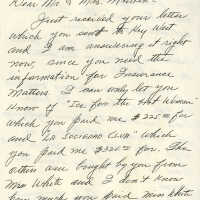 Dear Mr & Mrs
Just received your letter
which you sent to Key West
and I am answering it right
now, since you need the
information for Insurance
Matters. I can only let you
know of "Ice for the Hot Women
which you paid me $225.00 for
and "La Sociedad Club" which
you paid me for. The
others are bought by you from
Mrs White and I don't know
how much you paid Miss White